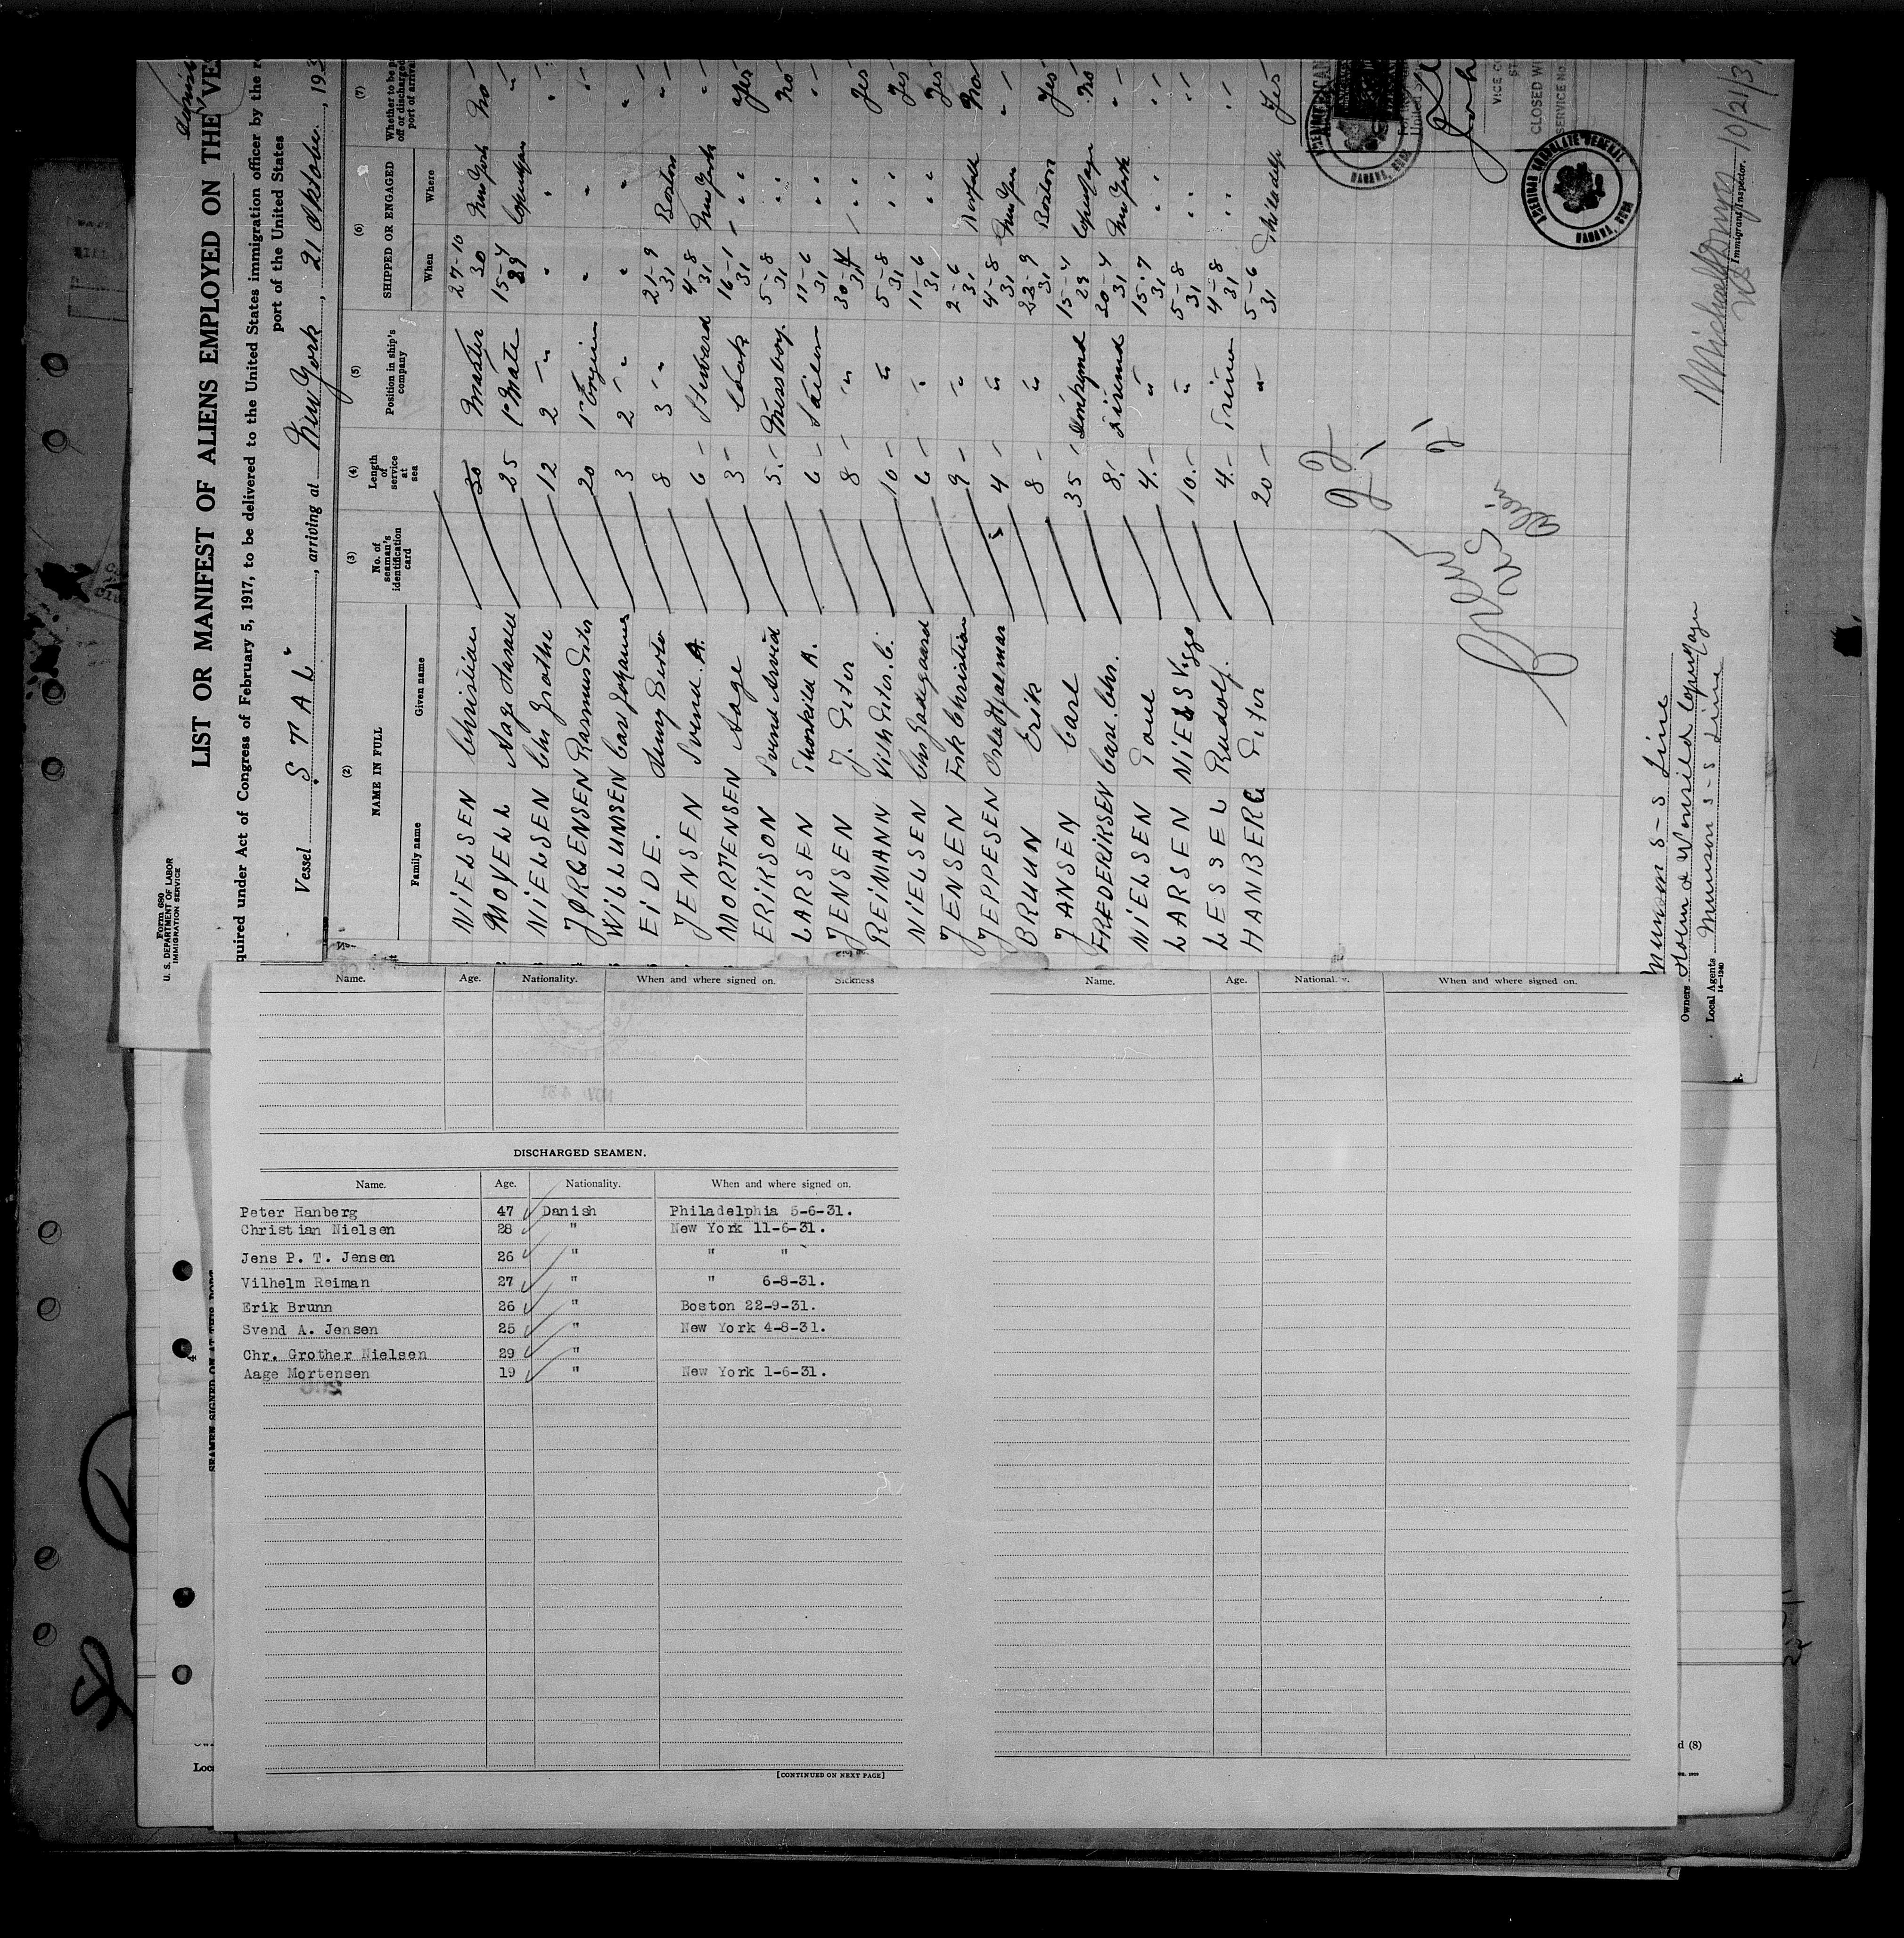 Form 680
U. S. DEPARTMENT OF LABOR
IMMIGRATION SERVICE
LIST OR MANIFEST OF ALIENS EMPLOYED ON THE VES
quired under Act of Congress of February 5, 1917, to be delivered to the United States immigration officer by the re
port of the United States
Vessel "STAL", arriving at New York, 21 Oktober, 193
(2) (3) (4) (5) (6) (7)
NAME IN FULL
Family name Given name
No. of seaman's identification card
Length of service at sea
Position in ship's company
SHIPPED OR ENGAGED
When Where
Whether to be p
off or discharged
port of arrival
NiELSEN Christian 30 Master 27-10 30 New York No
MOYELL Aage Harald 25 1' Mate 15-4 29 Copenhagen "
NiELSEN Chr Grothe 12 2 " " " "
JØRGENSEN Rasmus Peter 20 1' Engin " " "
WILLUMSEN Carl Johannes 3 2 " " " "
EiDE. 8 3 " 21-9 31 Boston "
JENSEN Svend. A. 6 Steward 4-8 31 New York "
MORTENSEN Aage 3 Cook 16-1 31 " " Yes
ERiKSON Svend Arvid 5 Messboy. 5-8 31 " " No
LARSEN Thorkild A. 6 Sailor 11-6 31 " " "
JENSEN J. Peter 8 " 30-4 31 " " Yes
REiNANN Vilh Peter C. 10 " 5-8 31 " " Yes
NiELSEN Chr 6 " 11-6 31 " " Yes
JENSEN Erik Christian 9 " 2-6 31 Norfolk No
JEPPESEN Hjalmar 4 " 4-8 31 "
BRUUN Erik 8 " 22-9 31 Boston Yes
JANSEN Carl 35 Donkymd 15-4 29 Copenhagen No
FREDERiKSEN Carl. Chr. 8. Firemd 30-4 31 New York "
NiELSEN Poul 4. " 15-7 31 " "
LARSEN NiELS Viggo 10. " 5-8 31 " "
LESSEL Rudolf. 4. Trimer 4-8 31 " "
HANBERG Peter 20 " 5-6 31 Philadelp Yes
AMERICAN CONSULATE GENERAL
HABANA, CUBA
VICE CO
CLOSED WI
SERVICE NO.
Munson S-S Line
Owners Holm & Wonsild Copenhagen
Local Agents Munson S-S Line
14—1240
10/21/31
Immigrant Inspector.
Name. Age. Nationality. When and where signed on. Sickness
DISCHARGED SEAMEN.
Name. Age. Nationality. When and where signed on.
Peter Hanberg 47 Danish Philadelphia 5-6-31.
Christian Nielsen 28 " New York 11-6-31.
Jens P. T. Jensen 26 " " "
Vilhelm Reiman 27 " " 6-8-31.
Erik Brunn 26 " Boston 22-9-31.
Svend A. Jensen 25 " New York 4-8-31.
Chr. Grother Nielsen 29 "
Aage Mortensen 19 " New York 1-6-31.
[CONTINUED ON NEXT PAGE]
Name. Age. National y. When and where signed on.
SEAMEN SIGNED ON AT THIS PORT
d (8)